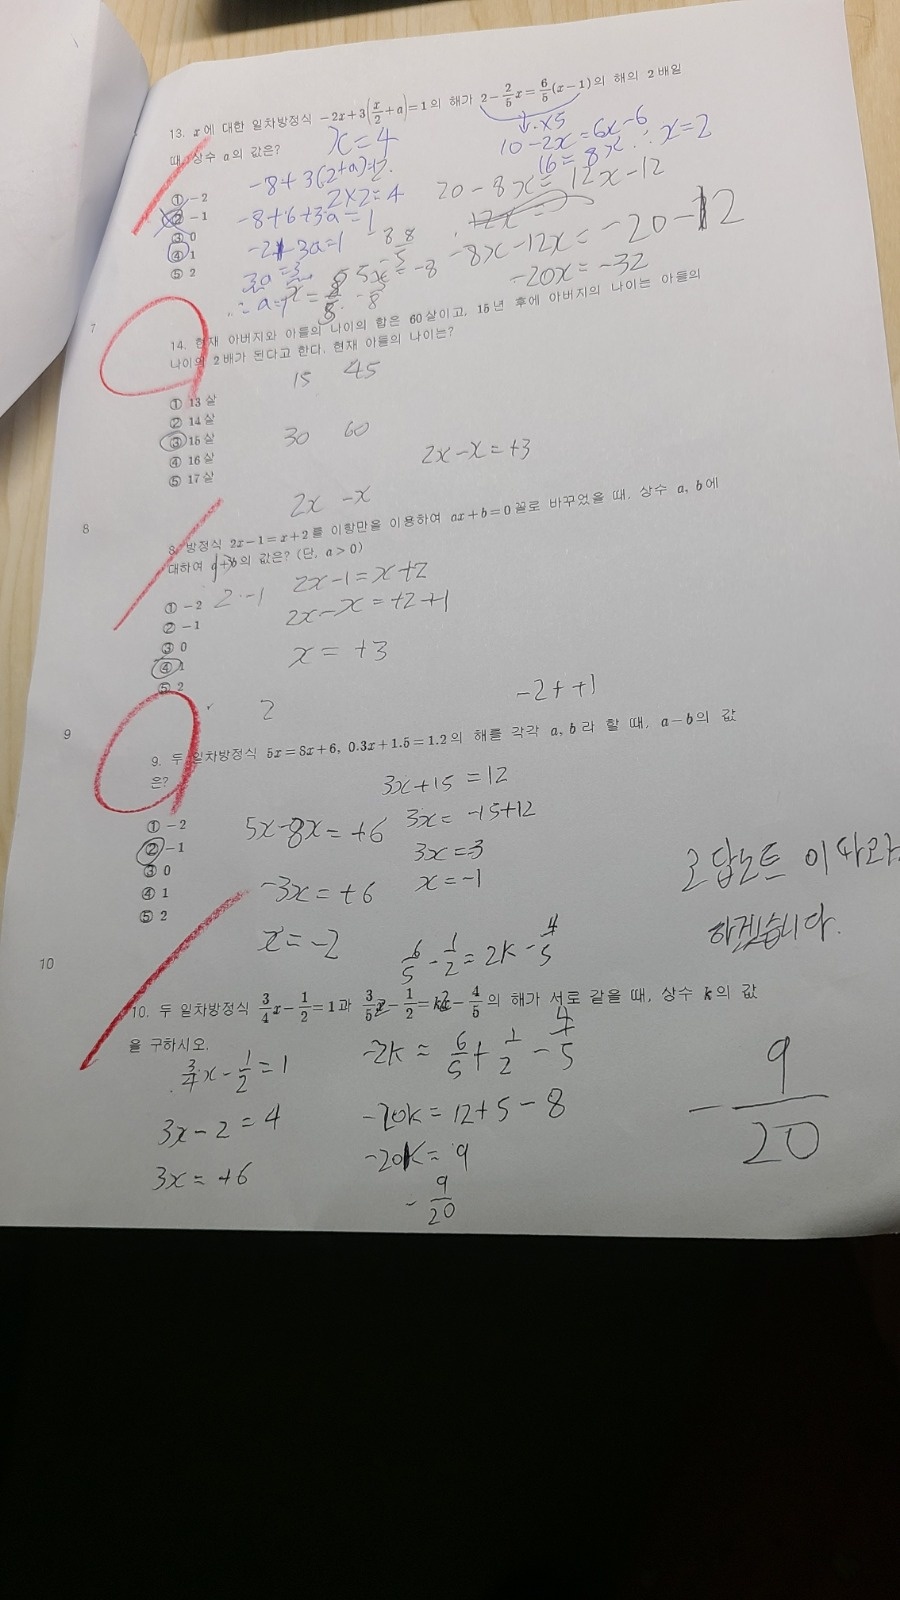 13. x에 대한 일차방정식 -2x+3(x/2+a)=1의 해가 2-2/5x=6/5(x-1)의 해의 2배일
때, 상수 a의 값은?
x=4
↓.×5
10-2x=6x-6
16=8x ∴x=2
① -2
② -1
③ 0
④ 1
⑤ 2
2×2=4
-8+6+3a=1
3a=3
∴a=1
20-8x=12x-12
-8x-12x=-20-12
-20x=-32
7
14. 현재 아버지와 아들의 나이의 합은 60살이고, 15년 후에 아버지의 나이는 아들의
나이의 2배가 된다고 한다. 현재 아들의 나이는?
15 45
① 13살
② 14살
③ 15살
④ 16살
⑤ 17살
30 60
2x-x=+3
2x -x
8
8. 방정식 2x-1=x+2를 이항만을 이용하여 ax+b=0꼴로 바꾸었을 때, 상수 a, b에
대하여 a+b의 값은? (단, a>0)
① -2
② -1
③ 0
④ 1
⑤ 2
2·-1
2x-1=x+2
2x-x=+2+1
x=+3
2
-2++1
9
9. 두 일차방정식 5x=8x+6, 0.3x+1.5=1.2의 해를 각각 a, b라 할 때, a-b의 값
은?
① -2
② -1
③ 0
④ 1
⑤ 2
5x-8x=+6
-3x=+6
x=-2
3x+15=12
3x=-15+12
3x=-3
x=-1
하겠습니다.
10
6/5-1/2=2k-4/5
10. 두 일차방정식 3/4x-1/2=1과 3/5x-1/2=kx-4/5의 해가 서로 같을 때, 상수 k의 값
을 구하시오.
3/4x-1/2=1
3x-2=4
3x=+6
-2k=6/5+1/2-4/5
-20k=12+5-8
-20k=9
-9/20
-9/20